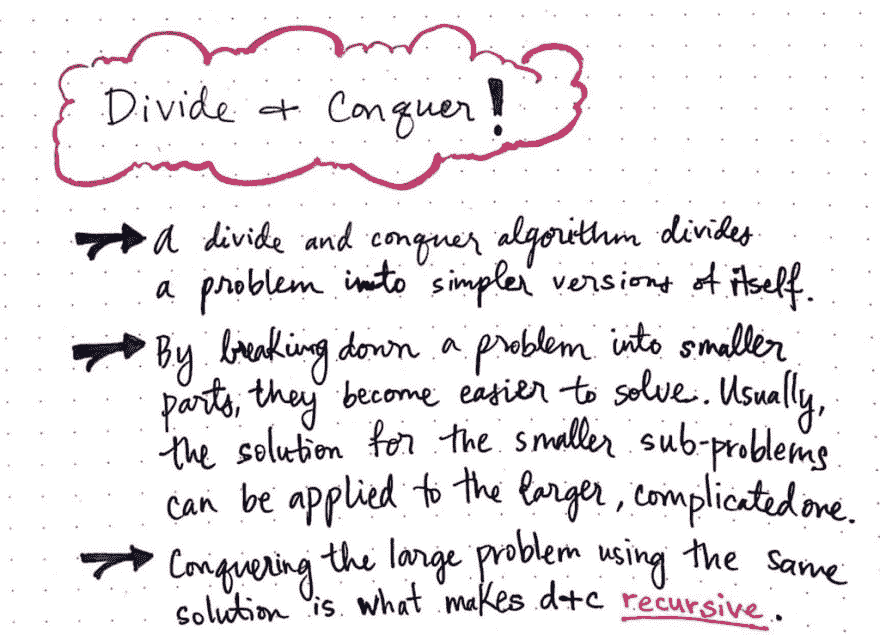 Divide + Conquer!
A divide and conquer algorithm divides
a problem into simpler versions of itself.
By breaking down a problem into smaller
parts, they become easier to solve. Usually,
the solution for the smaller sub-problems
can be applied to the larger, complicated one.
Conquering the large problem using the same
solution is what makes d+c recursive.